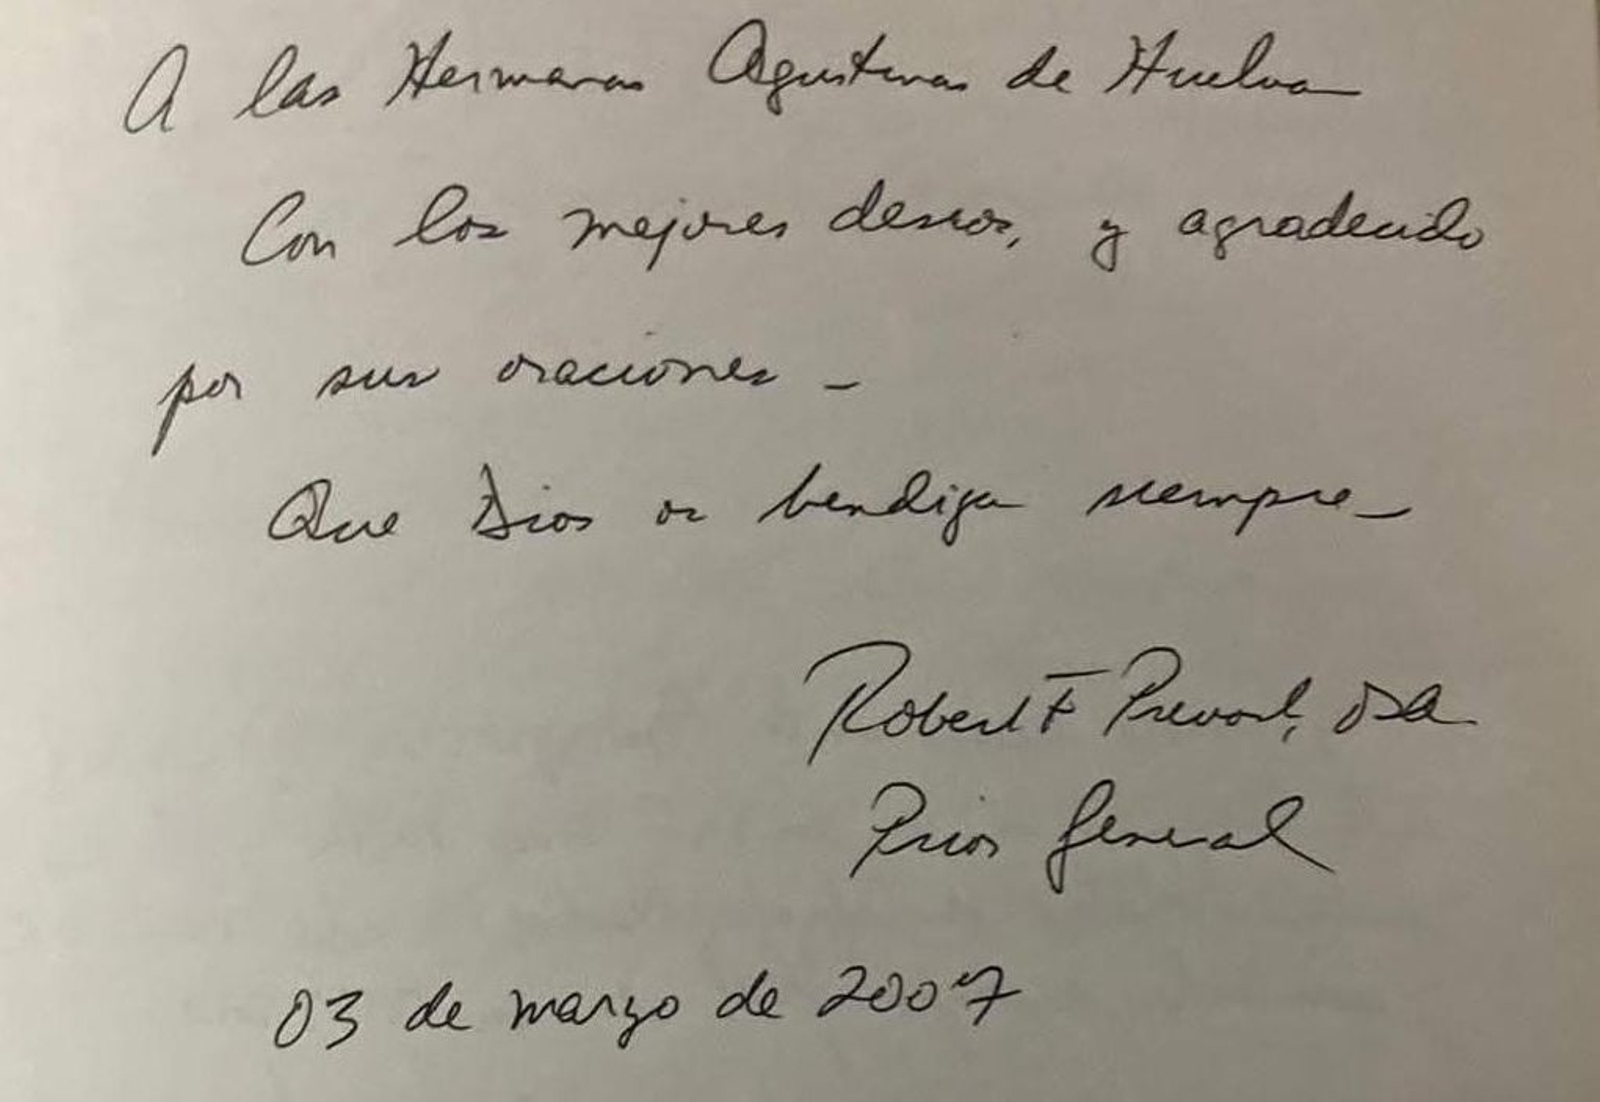 A las Hermanas Agustinas de Huelva
Con los mejores deseos, y agradecido
por sus oraciones -
Que Dios os bendiga siempre -
Robert F Prevost, OSA
Prior General
03 de marzo de 2007